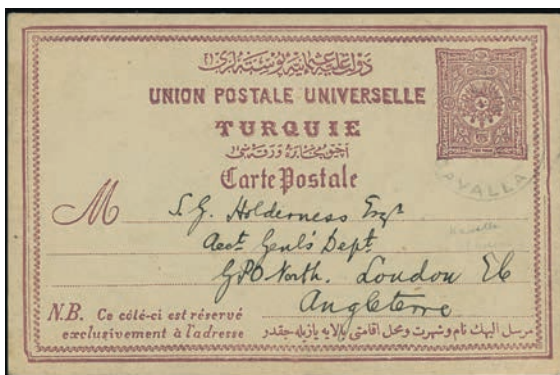 دولت علیه عثمانیه پوسته لری
UNION POSTALE UNIVERSELLE
TURQUIE
Carte Postale
M S. G. Holderness Esqr
Acct Genl's Dept
GPO North. London EC
Angleterre
N.B. Ce côté-ci est réservé
exclusivement à l'adresse
مرسل الیهك نام و شهرت و محل اقامتی بالایه یازیله جقدر